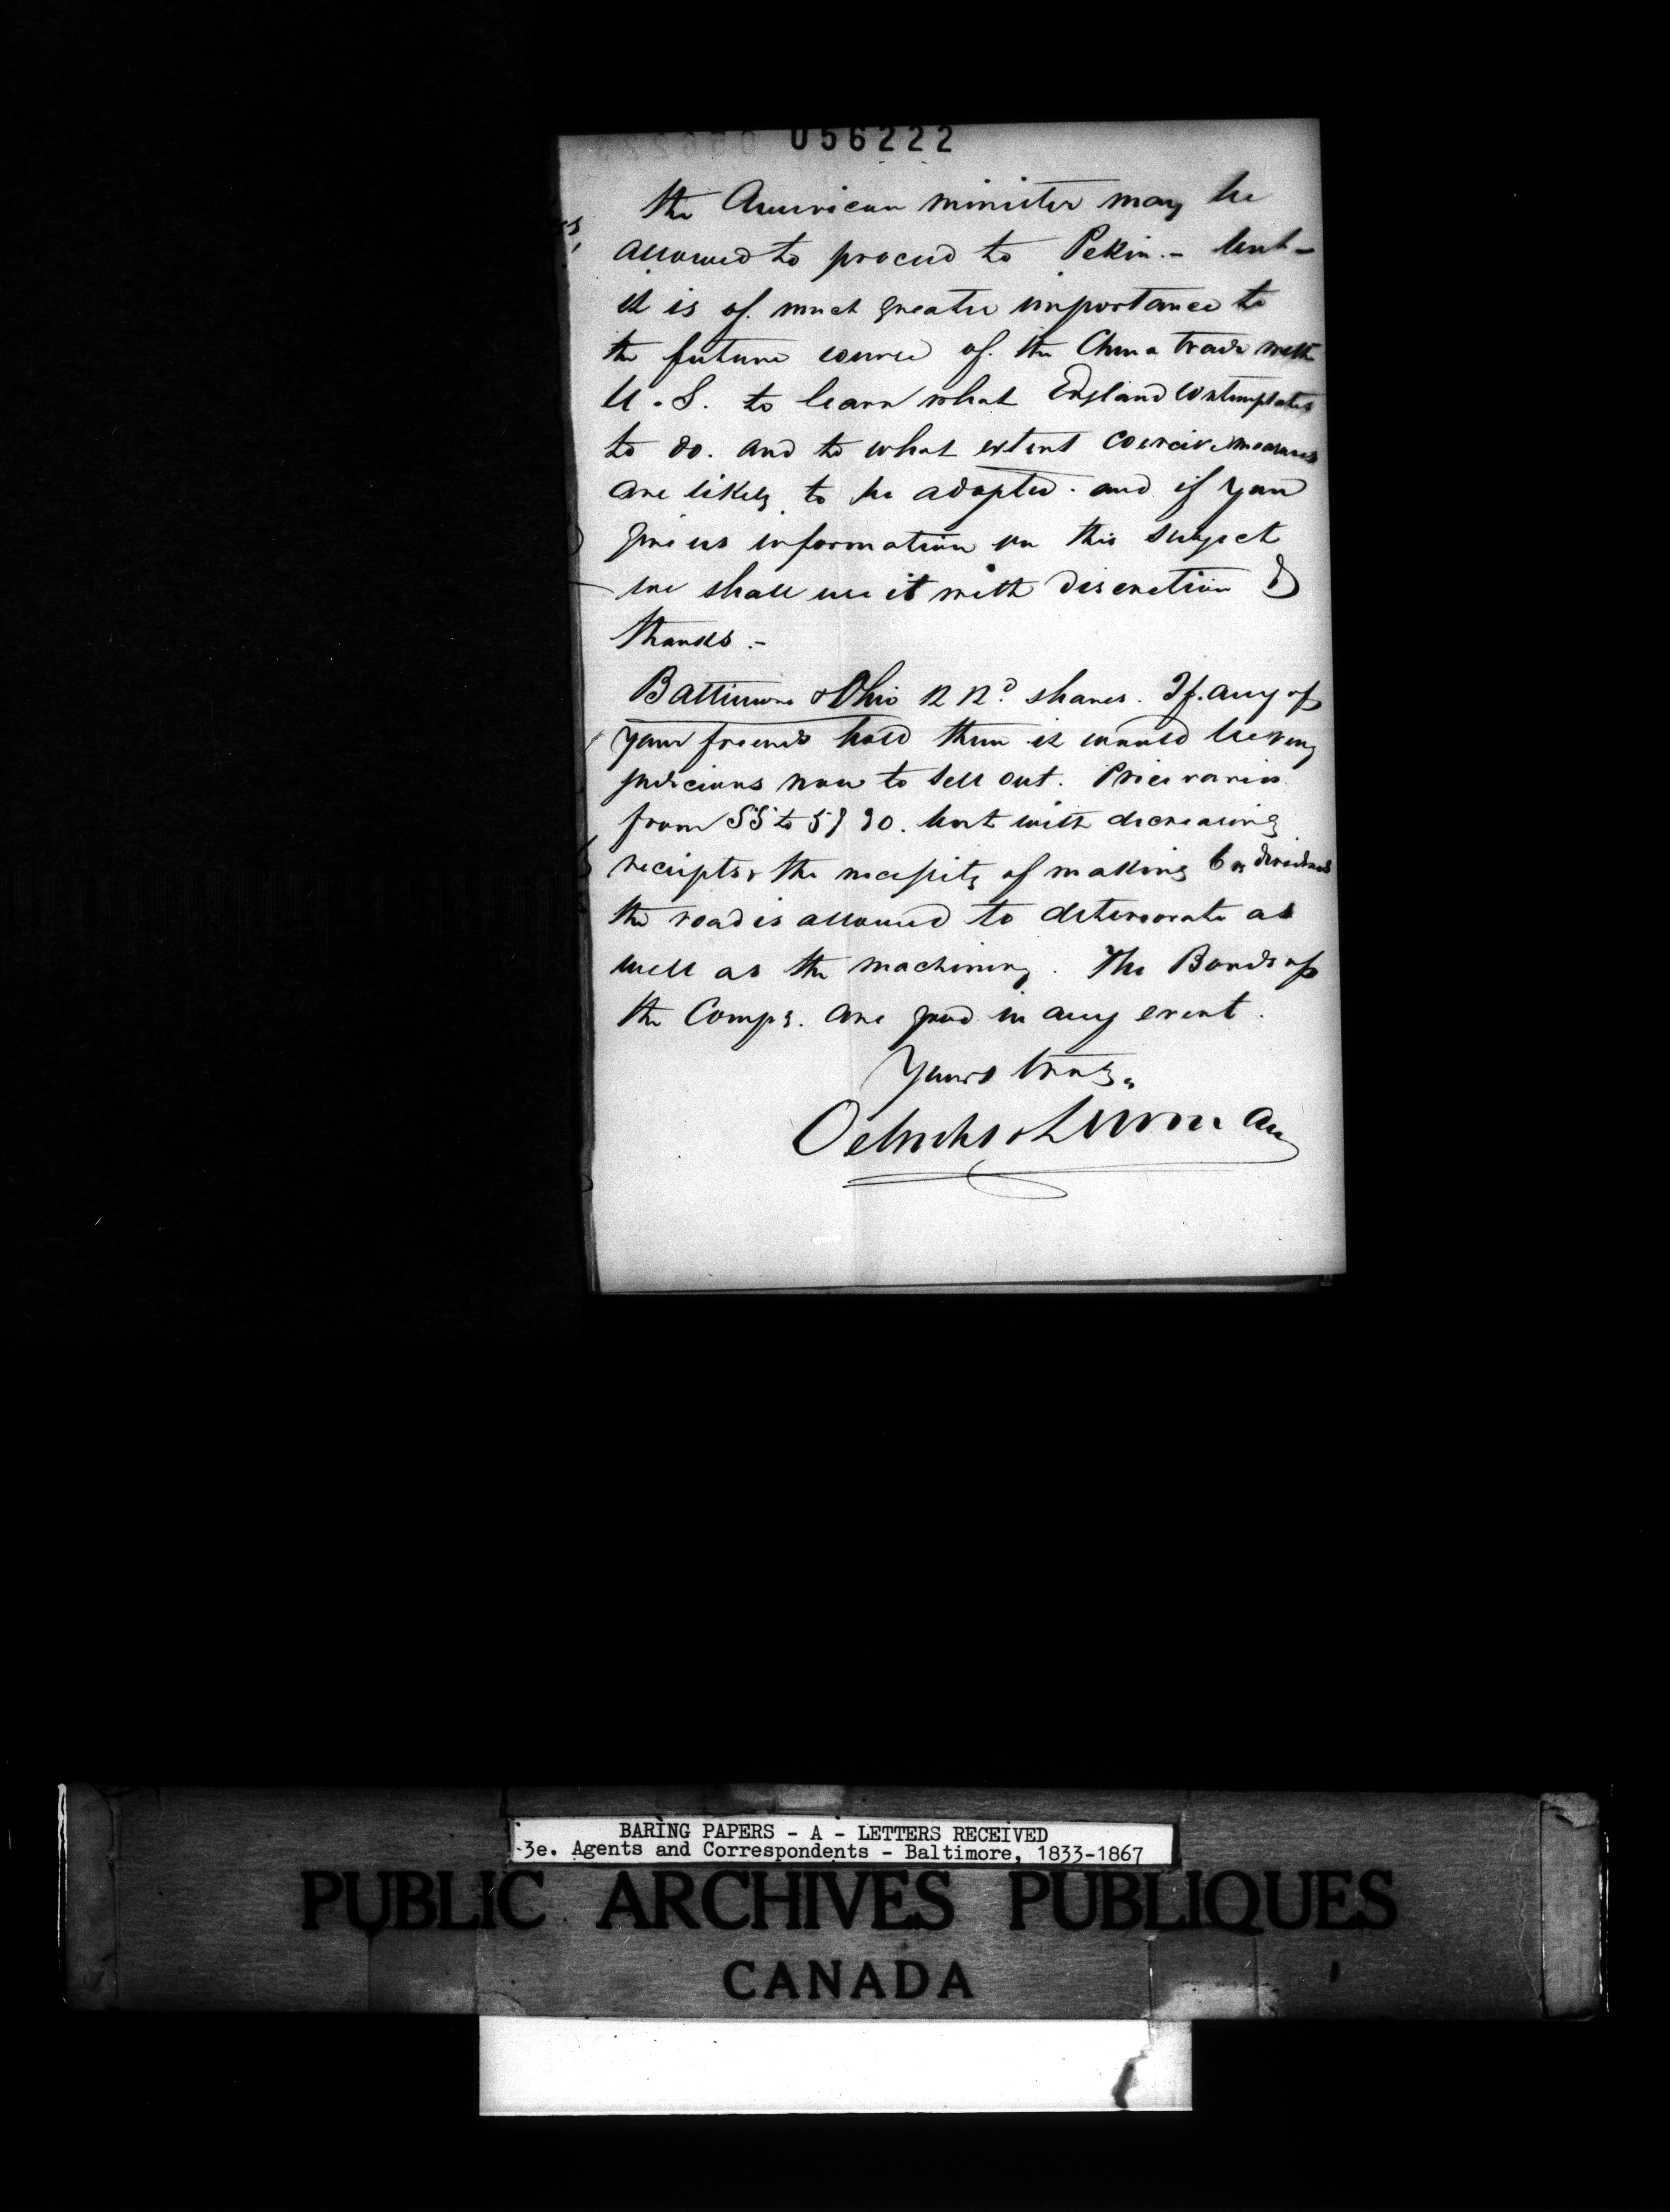 056222
the American minister may be
allowed to proceed to Pekin. - but -
it is of much greater importance to
the future course of the China trade with
U.S. to learn what England contemplates
to do. and to what extent coercive measures
are likely to be adopted. and if you
give us information on this subject
we shall use it with discretion &
thanks. -
Baltimore & Ohio R Rd. shares. If any of
your friends hold them it would be very
judicious now to sell out. Price varies
from 55 to 57 but with decreasing
receipts & the necessity of making dividends
the road is allowed to deteriorate as
well as the machinery. The Bonds of
the Compy. are good in any event.
Yours truly,
Oelrichs & Lurman
BARING PAPERS - A - LETTERS RECEIVED
3e. Agents and Correspondents - Baltimore, 1833-1867
PUBLIC ARCHIVES PUBLIQUES
CANADA